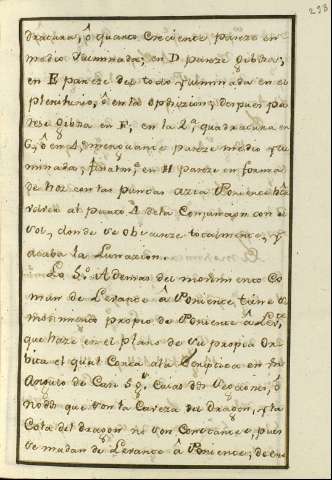 233
dracura, ô quarto Creciente parece en
medio Yluminada; en D parece gibosa,
en E parece del todo Yluminada en el
plenilunio, ô en la opposicion; despues pa
rese gibosa en F, en la 2ª quadracura en
G, ô en 4 menguante parece medio Ylu
minada; finalmte en H parece en forma
de hoz con las puntas azia Poniente
volver al punto A de la Conjuncion con el
sol, donde se obscurece totalmente, y
acaba la Lunacion.
Lo 5º Ademas del movimiento Co
mun de Levante â Poniente tiene el
movimiento proprio de Poniente â Levte
que haze en el plano de su propia Or
bita el qual Corta ala Ecliptica en un
Angulo de Casi 5 gs. Cuias dos secciones, ô
nodos que son la Caveza del dragon, y la
Cola del dragon no son Constantes, pues
se mudan de Levante â Poniente; de